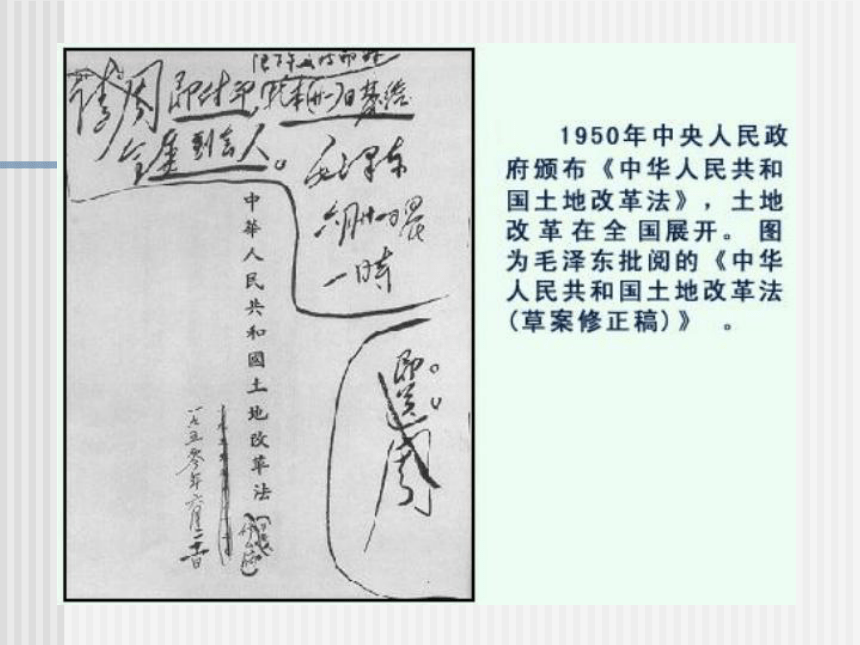 限下午五时印好
请周即付印，于本(廿一)日发给
全案到会人。
毛泽东
六月廿一日晨
一时
中華人民共和國土地改革法
一九五零年六月二十一日
即送
周
1950年中央人民政
府颁布《中华人民共和
国土地改革法》，土地
改革在全国展开。图
为毛泽东批阅的《中华
人民共和国土地改革法
(草案修正稿)》 。